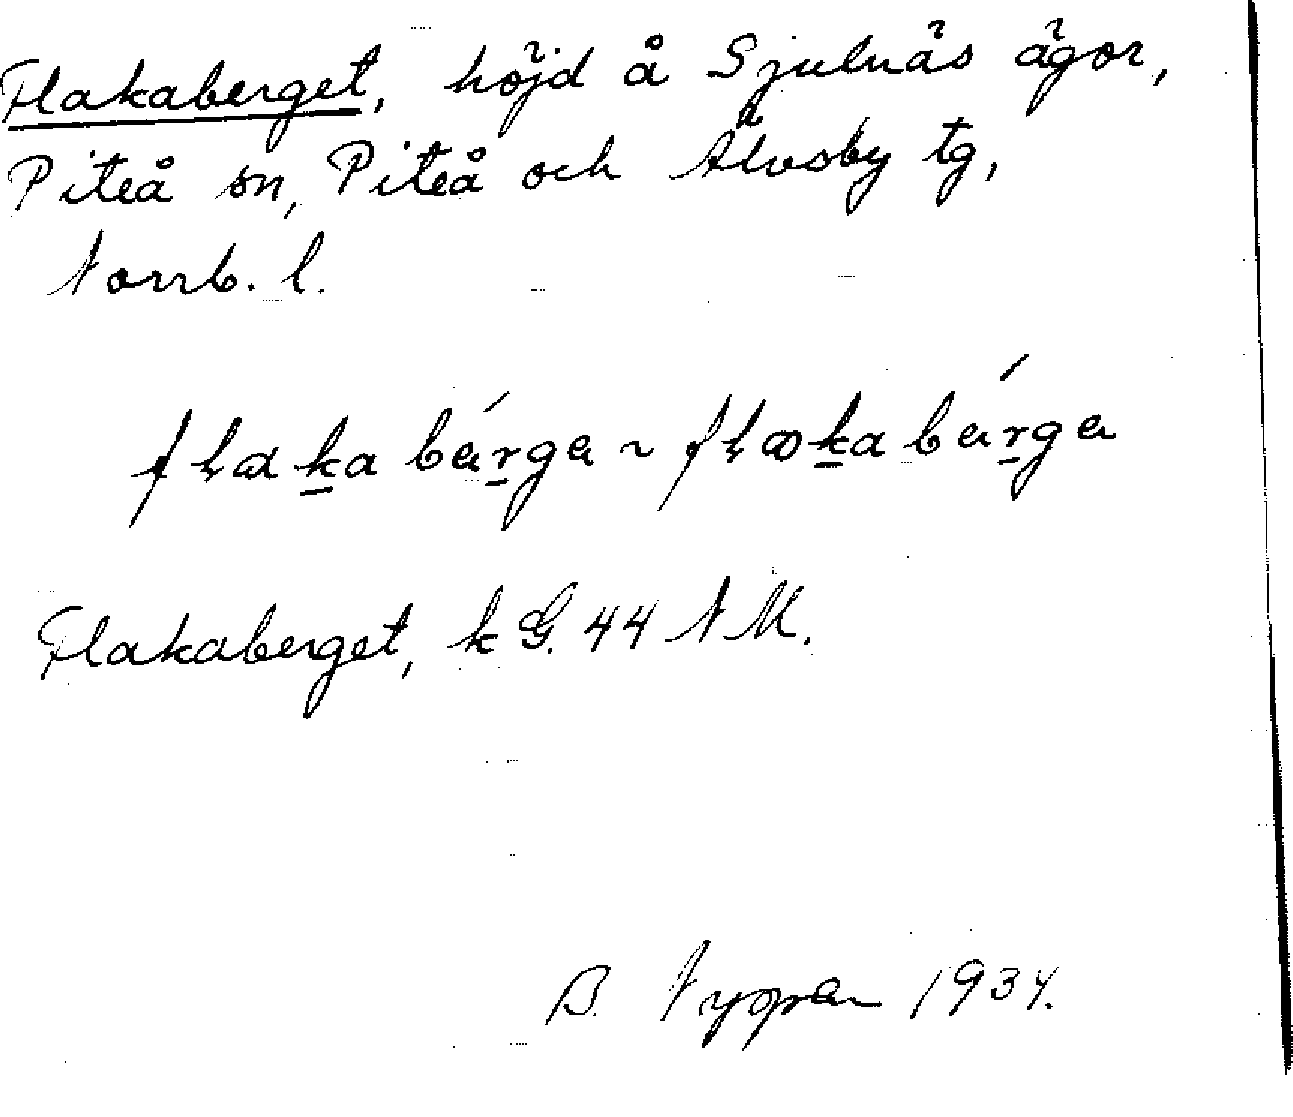 Flakaberget, höjd å Sjulnäs ägor,
Piteå sn, Piteå och Älvsby tg,
Norrb. l.
flaka bárga ~ flaka bárga
Flakaberget, k G. 44 N M.
B. 1934.